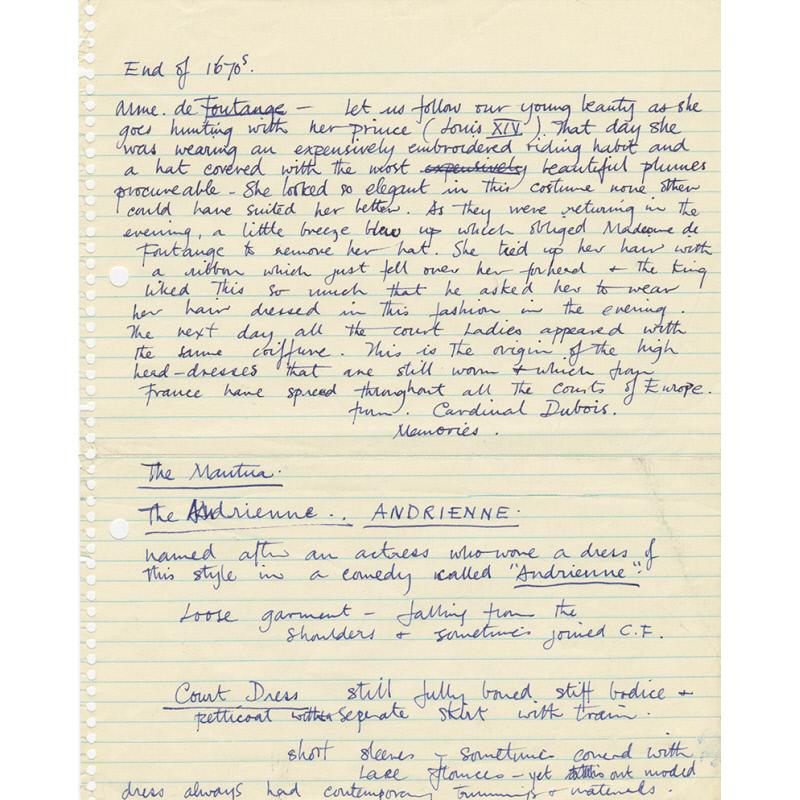 End of 1670s.
Mme. de Fontange — Let us follow our young beauty as she
goes hunting with her prince (Louis XIV). That day she
was wearing an expensively embroidered riding habit and
a hat covered with the most expensively beautiful plumes
procureable - She looked so elegant in this costume none other
could have suited her better. As they were returning in the
evening, a little breeze blew up which obliged Madame de
Fontange to remove her hat. She tied up her hair with
a ribbon which just fell over her forhead & the King
liked this so much that he asked her to wear
her hair dressed in this fashion in the evening.
The next day all the court Ladies appeared with
the same coiffure. This is the origin of the high
head-dresses that are still worn & which from
France have spread throughout all the courts of Europe.
from. Cardinal Dubois.
Memories.
The Mantua.
The Andrienne.. ANDRIENNE.
named after an actress who wore a dress of
this style in a comedy called "Andrienne".
Loose garment - falling from the
shoulders & sometimes joined C.F.
Court Dress still fully boned stiff bodice &
petticoat with a seperate skirt with train.
short sleeves - sometimes covered with
Lace flounces - yet this out moded
dress always had contemporary trimmings & materials.